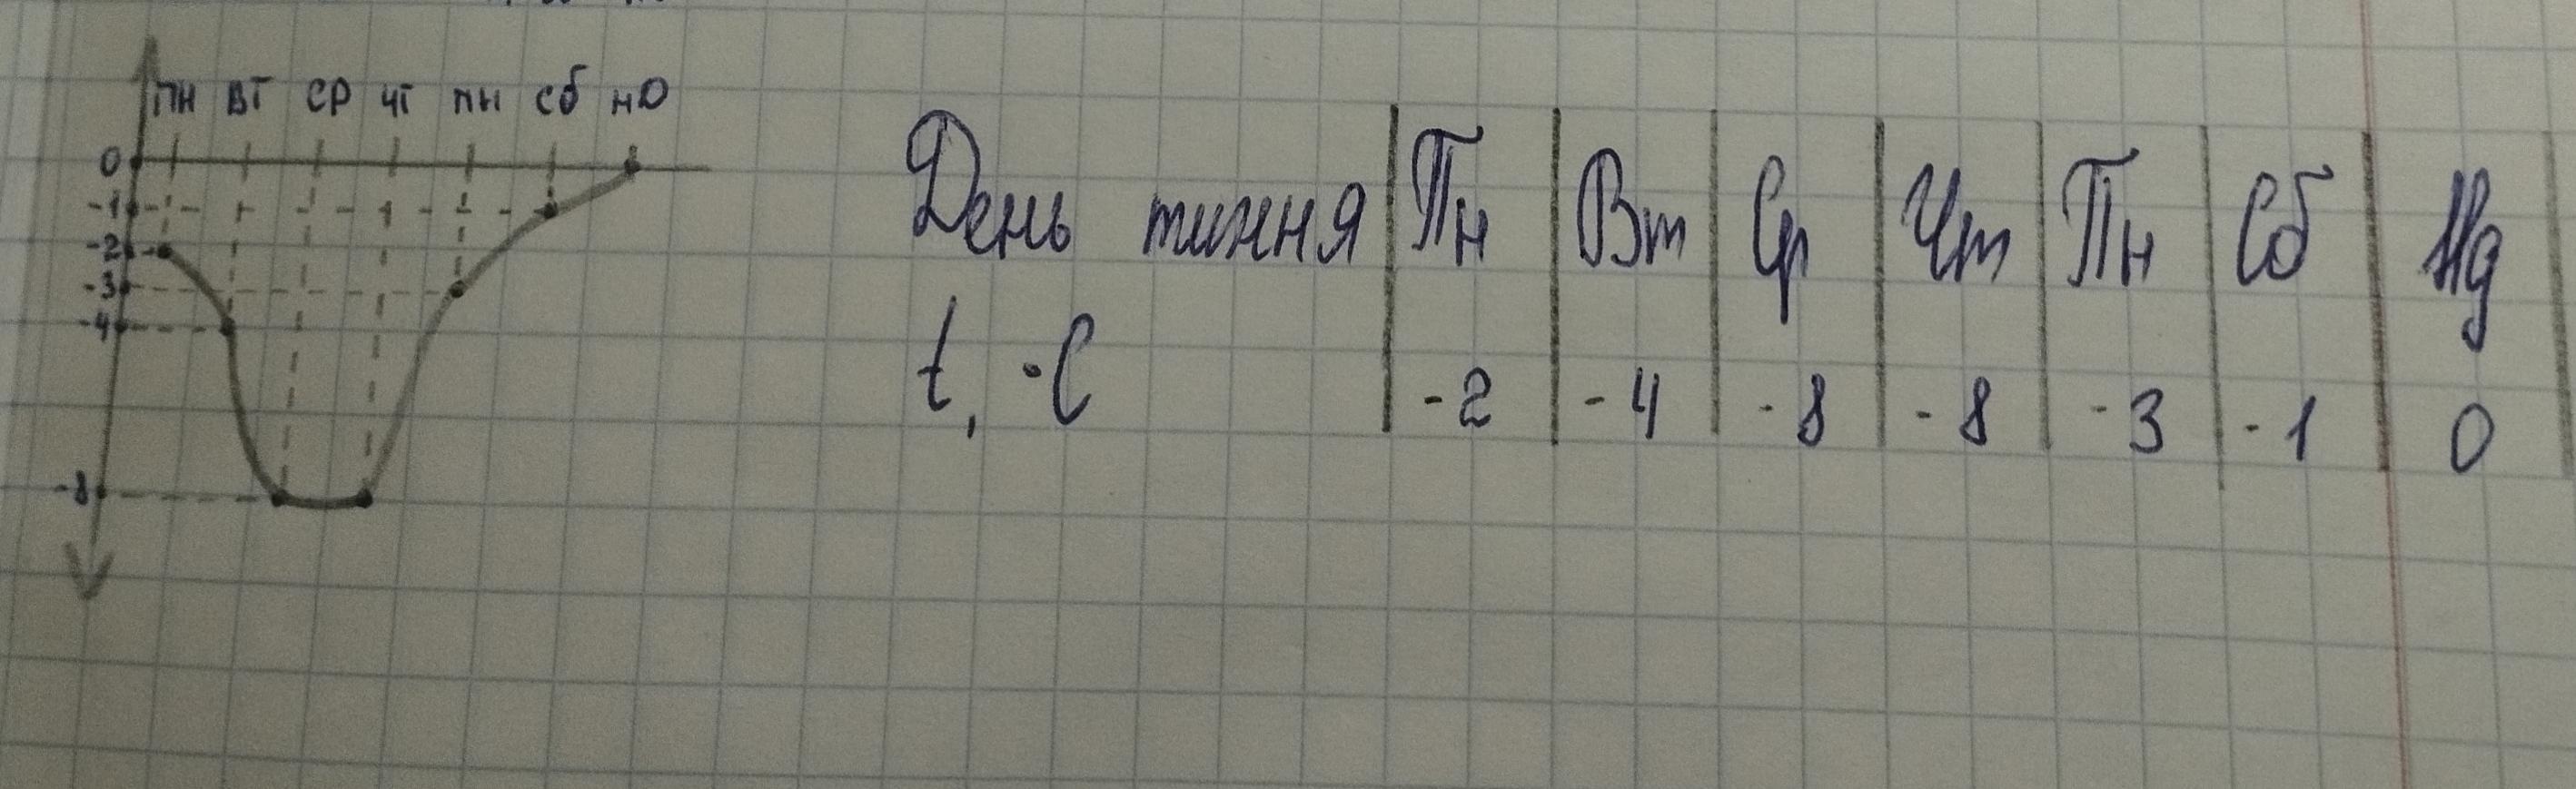 ПН ВТ СР ЧТ ПН Сб НД
0
-1
-2
-3
-4
-8
День тижня Пн Вт Ср Чт Пн Сб Нд
t, °C -2 -4 -8 -8 -3 -1 0